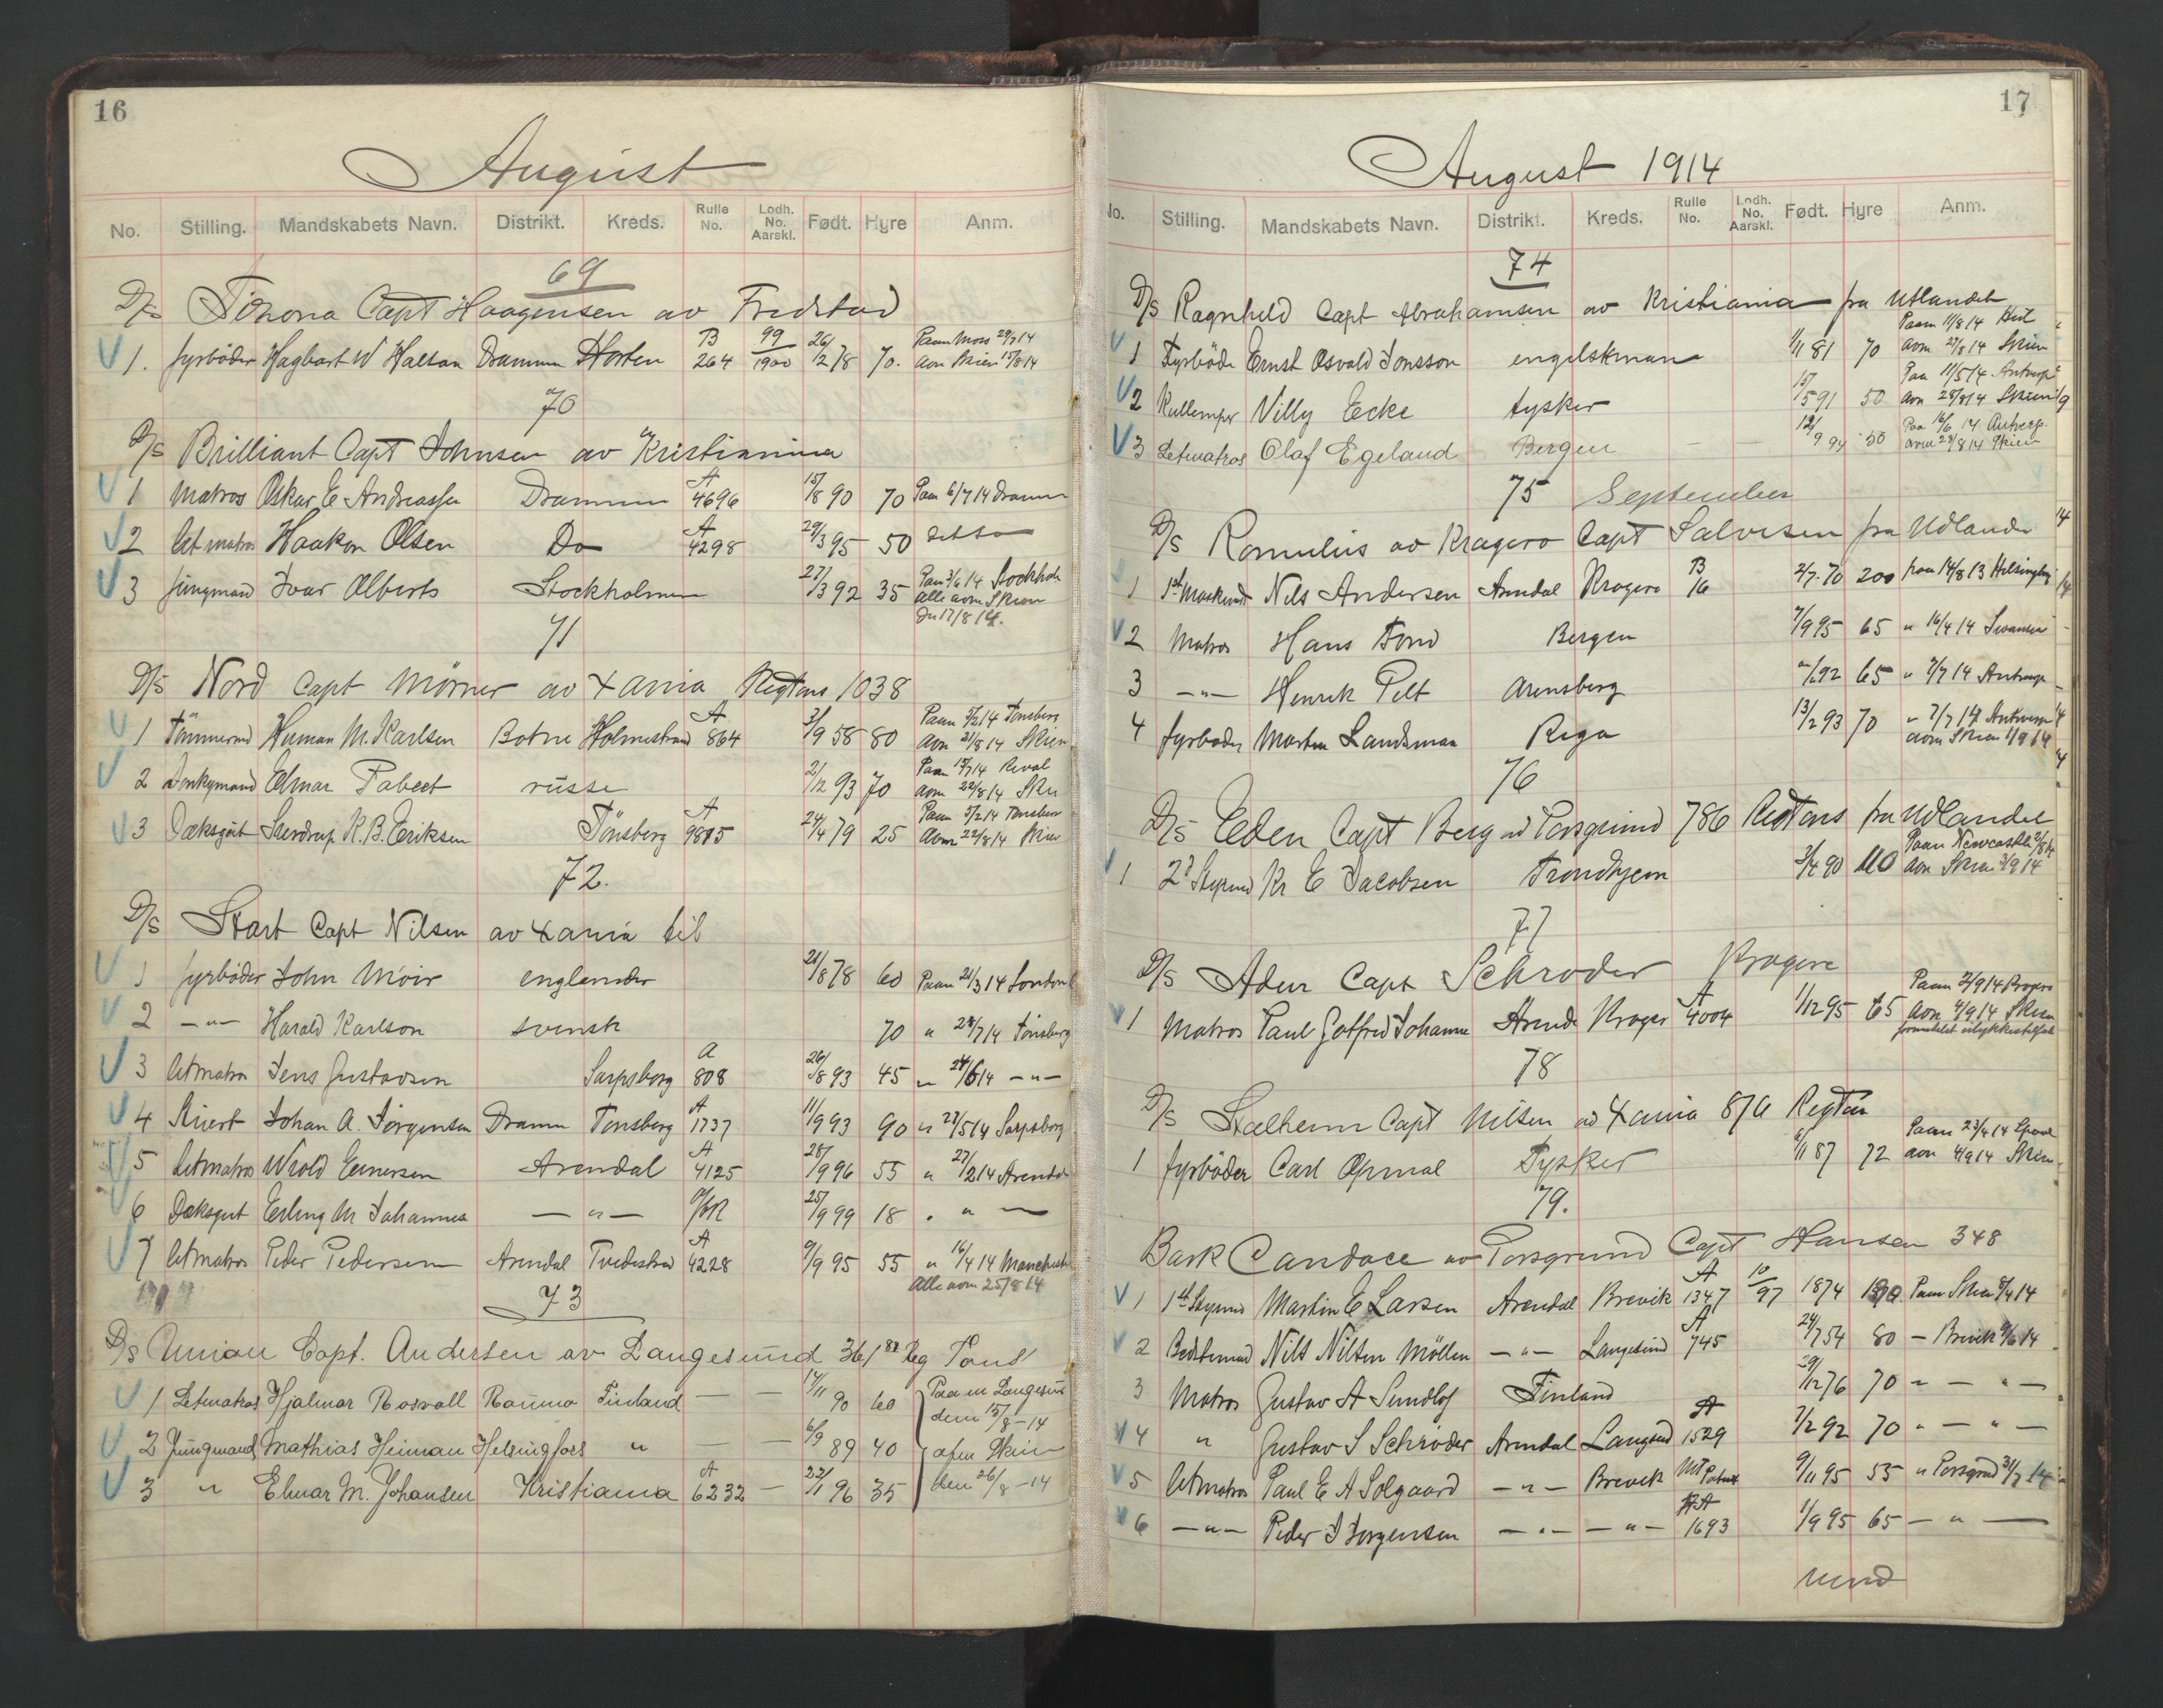 16
August
No. Stilling. Mandskabets Navn. Distrikt. Kreds. Rulle No. Lodh. No. Aarskl. Født. Hyre Anm.
69
D/s Capt Haagensen av Fredstad
1. fyrbøder Hagbart W Drammen Horten B 264 99/1900 26/12 78 70. Paam Moss 29/7 14
avm Skien 15/8 14
70
D/s Brilliant Capt Johnsen av Kristiania
1 Matros Oskar E Andreassen Drammen A 4696 15/8 90 70 Paam 6/7 14 Drammen
2 Letmatros Haakon Olsen Do A 4298 29/3 95 50
3 Jungmand Ivar Alberts Stockholm 27/3 92 35 Paam 3/6 14 Stockholm
alle avm Skien
17/8 14.
71
D/s Nord Capt Mörner av Xania Regtons 1038
1 Tömmermd Herman M. Karlsen Botne Holmestrand A 864 3/9 58 80 Paam 5/2 14 Tønsberg
Avm 21/8 14 Skien
2 Donkymand Elmar Pabeet russe 2/12 93 70 Paam 17/7 14 Reval
avm 22/8 14
3 Dæksgut K. B. Eriksen Tönsberg A 9815 24/4 79 25 Paam 5/2 14
Avm 22/8 14 Skien
72.
D/s Start Capt Nilsen av Xania til
1 fyrbøder John Moir englender 21/8 78 60 Paam 21/3 14 London
2 -"- Harald Karlson svensk 70 " 28/7 14 Tønsberg
3 Letmatros Jens Gustavsen Sarpsborg A 808 26/8 93 45 " 24/6 14 -"-
4 Stuert Johan A. Jørgensen Drammen Tønsberg A 1737 11/9 93 90 " 27/5 14 Sarpsborg
5 Letmatros Arendal A 4125 28/9 96 55 " 27/2 14 Arendal
6 Dæksgut Erling M Johannes -"- 25/9 99 18 " " -
7 Letmatros Peder Pedersen Arendal Tvedestrand A 4228 9/9 95 55 " 16/4 14 Manchester
Alle avm 25/8 14
73
D/s Union Capt. Andersen av Langesund 361 Reg Tons
1 Letmatros Hjalmar Rosvall Raumo Finland — — 14/11 90 60 Paam Langesund
den 15/8-14
2 Jungmand Mathias Heiman Helsingfors " — — 6/9 89 40 afm Skien
3 " Elmar M. Johansen Kristiania A 6232 — 22/1 96 35 den 26/8-14
17
August 1914
No. Stilling. Mandskabets Navn. Distrikt. Kreds. Rulle No. Lodh. No. Aarskl. Født. Hyre Anm.
74
D/s Ragnhild Capt Abrahamsen av Kristiania fra Utlandet
Paam 11/8 14
1 Fyrbøder Ernst Osvald Jonsson engelskman 1/11 81 70 avm 27/8 14 Skien
2 Kullemper Villy Ecke tysker 15/5 91 50 Paa 11/5 14 Antverp
avm 28/8 14 Skien
3 Letmatros Olaf Egeland Bergen — — 12/9 94 50 Paa 16/6 14 Antverp.
avm 29/8 14 Skien
75 September
D/s Romulus av Kragerø Capt Salvesen fra Udlandet
1 1st Maskinist Nils Andersen Arendal Kragerø B 16 2/7 70 200 fraa 14/8 13 Helsingborg
2 Matros Hans Tond Bergen 7/9 95 65 " 16/4 14 Swansea
3 -"- Henrik Pelt Arensberg 92 65 " 7/7 14 Antverp
4 fyrbøder Morten Landsman Riga 13/2 93 70 " 7/7 14 Antverpen
avm Skien 1/9 14
76
D/s Eden Capt Berg av Porsgrund 786 Regtons fra Udlandet
Paam Newcastle 2/8 14
1 2d Styrmd Kr E Jacobsen Trondhjem 3/4 90 110 avm Skien 3/9 14
77
D/s Aden Capt Schrøder Kragerø
Paam 2/9 14
1 Matros Paul Gotfred Johannes Arendal Kragerø A 4004 1/12 95 65 Avm 4/9 14 Skien
78
D/s Stalheim Capt Nilsen av Xania 871 Regton
1 fyrbøder Carl Opmal Tysker 6/11 87 72 Paam 23/4 14
avm 4/9 14 Skien
79.
Bark Candace av Porsgrund Capt Hansen 348
1 1st Styrmd Martin E Larsen Arendal Brevik A 1347 10/97 1874 Paam Skien 8/4 14
2 Bedstemand Nils Nilsen Möllen -"- Langesund A 745 24/7 54 80 — Brevik 9/6 14
3 Matros Gustav A Sundlof Finland 29/12 76 70 " — " —
4 " Gustav S Schrøder Arendal Langesund A 1529 7/2 92 70 " — " —
5 Letmatros Paul E A Solgaard -"- Brevik 9/11 95 55 " Porsgrund 31/7 14
6 -"- Peder J Jørgensen -"- -"- A 1693 1/9 95 65 — " —
vend